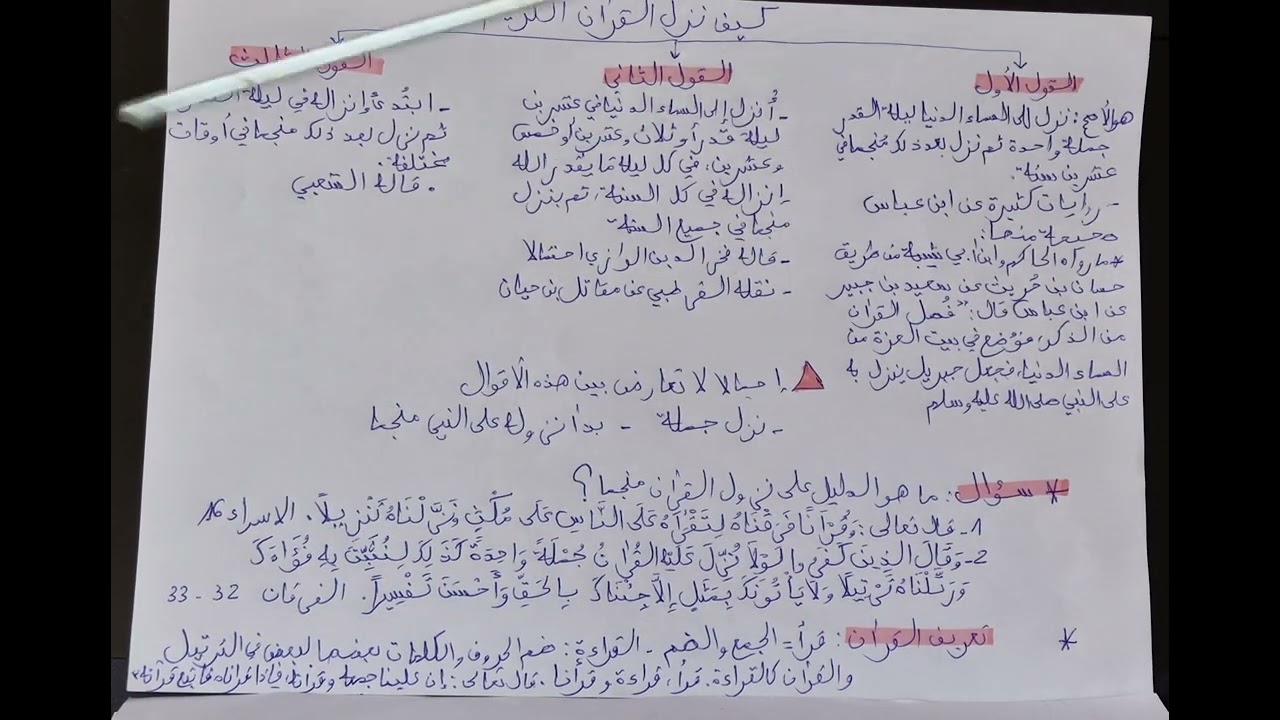 كيف نزل القرآن
القول الأول
هو الأصح: نزل إلى السماء الدنيا ليلة القدر
جملة واحدة ثم نزل بعد ذلك منجما في
عشرين سنة.
- روايات كثيرة عن ابن عباس
صحيحة منها:
* ما رواه الحاكم وابن أبي شيبة من طريق
حسان بن حريث عن سعيد بن جبير
عن ابن عباس قال: "فُصل القرآن
من الذكر، فوُضع في بيت العزة من
السماء الدنيا، فجعل جبريل ينزل به
على النبي صلى الله عليه وسلم
القول الثاني
- أُنزل إلى السماء الدنيا في عشرين
ليلة قدر أو ثلاث وعشرين أو خمس
وعشرين، في كل ليلة ما يقدر الله
إنزاله في كل السنة، ثم ينزل
منجما في جميع السنة
- قاله فخر الدين الرازي احتمالا
- نقله القرطبي عن مقاتل بن حيان
القول الثالث
- ابتُدئ إنزاله في ليلة
ثم نزل بعد ذلك منجما في أوقات
مختلفة.
. قاله الشعبي
إجمالا لا تعارض بين هذه الأقوال
- نزل جملة - بدأ نزوله على النبي منجما
* سؤال: ما هو الدليل على نزول القرآن منجما؟
1- قال تعالى: وَقُرْآنًا فَرَقْنَاهُ لِتَقْرَأَهُ عَلَى النَّاسِ عَلَى مُكْثٍ وَنَزَّلْنَاهُ تَنْزِيلاً. الاسراء
2- وَقَالَ الَّذِينَ كَفَرُوا لَوْلَا نُزِّلَ عَلَيْهِ القُرْآنُ جُمْلَةً وَاحِدَةً كَذَلِكَ لِنُثَبِّتَ بِهِ فُؤَادَكَ
وَرَتَّلْنَاهُ تَرْتِيلًا وَلَا يَأْتُونَكَ بِمَثَلٍ إِلَّا جِئْنَاكَ بِالحَقِّ وَأَحْسَنَ تَفْسِيراً. الفرقان 32 - 33
* تعريف القرآن: قرأ = الجمع والضم - القراءة: ضم الحروف والكلمات بعضها لبعض في الترتيل
والقرآن كالقراءة. قرأ، قراءة وقرآنا. قال تعالى: إن علينا جمعه وقرآنه فإذا قرأناه فاتبع قرآنه